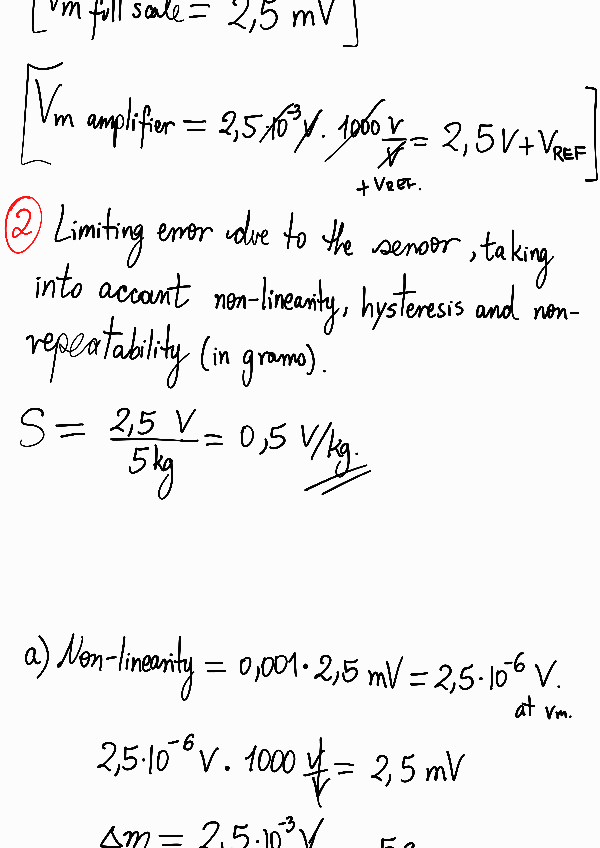 [Vm full scale = 2,5 mV]
[Vm amplifier = 2,5·10⁻³ V · 1000 V/V = 2,5V + VREF]
+ VREF.
② Limiting error due to the sensor, taking
into accont non-linearity, hysteresis and non-
repeatability (in grams).
S = 2,5 V / 5 kg = 0,5 V/kg.
a) Non-linearity = 0,001 · 2,5 mV = 2,5·10⁻⁶ V.
at Vm.
2,5·10⁻⁶ V · 1000 V/V = 2,5 mV
Δm = 2,5·10⁻³ V